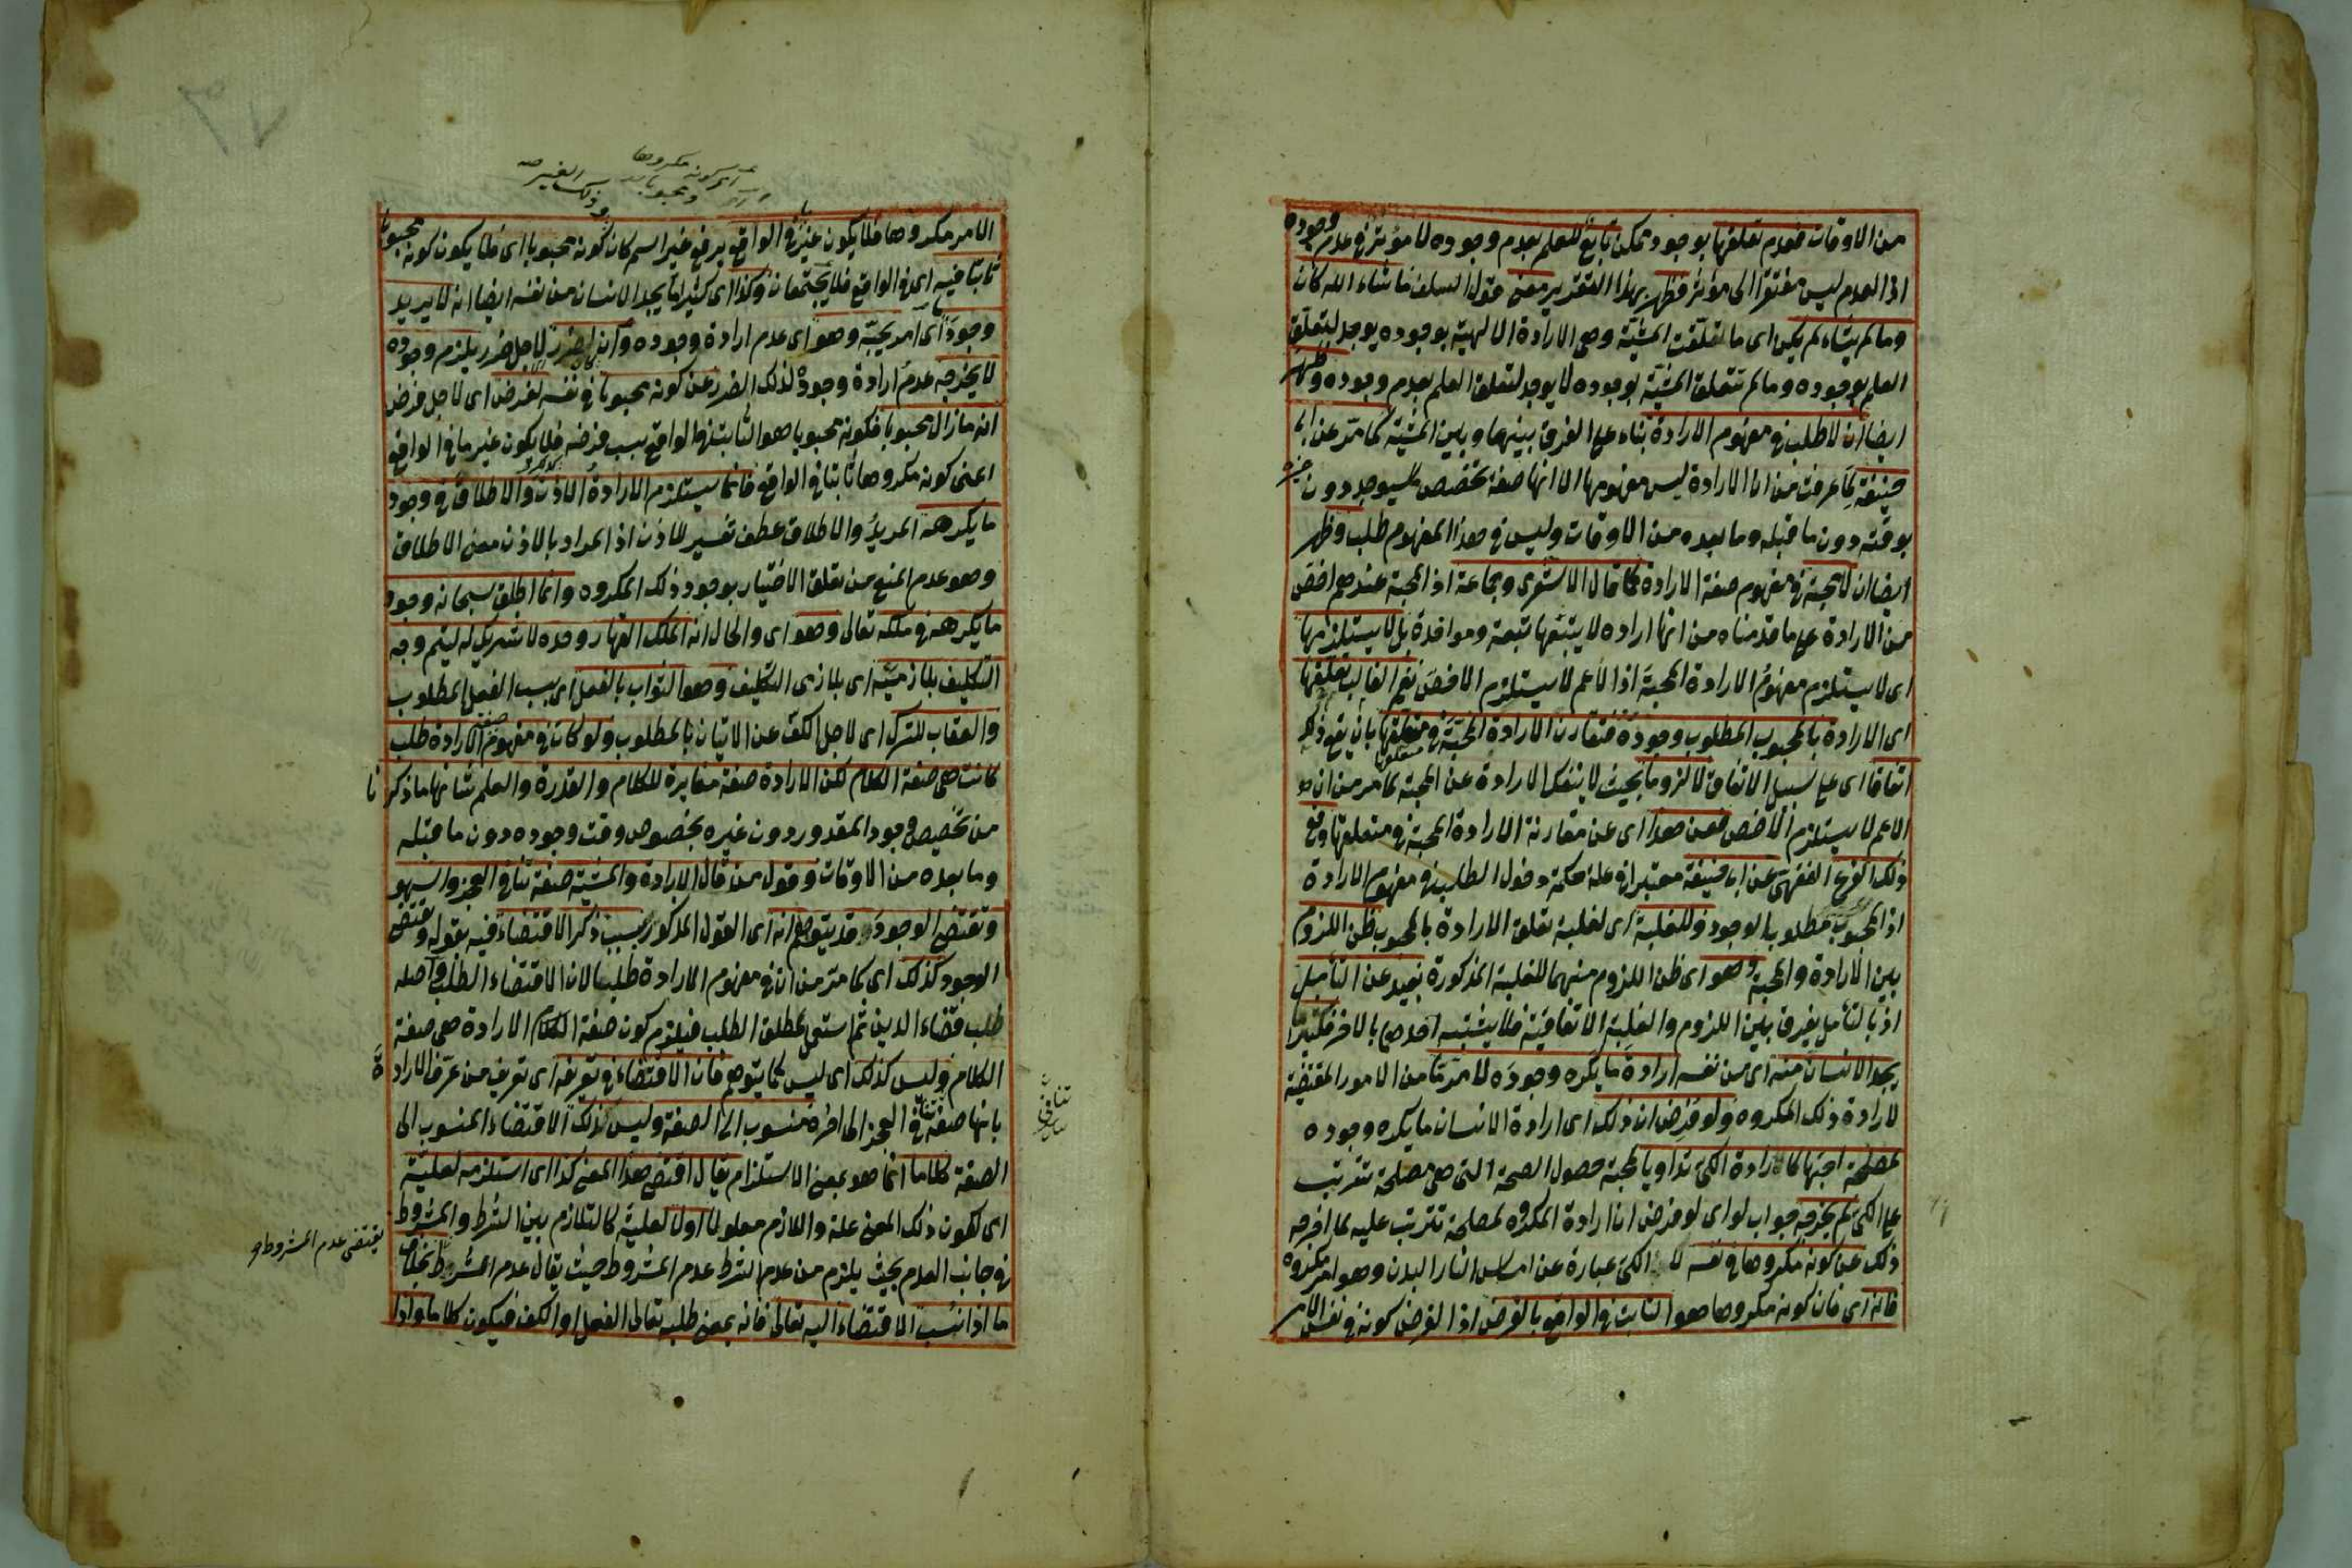 من الاوقات فعدم تعلقها بوجود ممكن تابع للعلم بعدم وجوده لا مؤثر في عدم وجوده
اذ العدم ليس مفتقرا الى مؤثر فظهر بهذا التقدير معنى قول السلف ما شاء الله كان
وما لم يشاء لم يكن اى ما تعلقت المشيّة وهى الارادة الالهية بوجوده يوجد لتعلق
العلم بوجوده وما لم تتعلق المشيّة بوجوده لا يوجد لتعلق العلم بعدم وجوده وظهر
ايضا ان لا طلب في مفهوم الارادة بناء على الفرق بينهما وبين المشيّة كما مر عن ابى
حنيفة لما عرفت من ان الارادة ليس مفهومها الا انها صفة تخصص ما سيوجد دون غيره
بوقته دون ما قبله وما بعده من الاوقات وليس في هذا المفهوم طلب وظهر
ايضا ان لا محبة في مفهوم صفة الارادة كما قال الاشعرى وجماعة اذ المحبة عندهم اخص
من الارادة على ما قدمناه من انها ارادة لا يتبعها تبعة ومواخذة بل لا يستلزمها
اى لا يستلزم مفهوم الارادة المحبة اذ الاعم لا يستلزم الاخص نعم الغالب تعلقها
اى الارادة بالمحبوب المطلوب وجوده فتقارن الارادة المحبة في متعلقها بان يقع ذلك
اتفاقا اى على سبيل الاتفاق لا لزوما بحيث لا ينفك متعلق الارادة عن المحبة لما مر من ان
الاعم لا يستلزم الاخص فعن هذا اى عن مقارنة الارادة المحبة في متعلقها وقع
ذلك الفرع الفقهى عن ابى حنيفة معتبرا في علة حكمه دخول الطلب في مفهوم الارادة
اذ المحبوب مطلوب الوجود وللغلبة اى لغلبة تعلق الارادة بالمحبوب ظن اللزوم
بين الارادة والمحبة وهو اى ظن اللزوم منهما للغلبة المذكورة بعيد عن التأمل
اذ بالتأمل يفرق بين اللزوم والغلبة الاتفاقية فلا يشتبه احدهما بالاخر فكثيرا ما
يجد الانسان منه اى من نفسه ارادة ما يكره وجوده لامر ما من الامور المقتضية
لارادة ذلك المكروه ولو فرض ان ذلك اى ارادة الانسان ما يكره وجوده
لمصلحة احبها كارادة الكى تداويا لمحبة حصول الصحة التى هى مصلحة تترتب
على الكى لم يخرجه جواب لو اى لو فرض ان ارادة المكروه لمصلحة تترتب عليه لما اخرجه
ذلك عن كونه مكروها في نفسه الكى عبارة عن امساس النار البدن وهو امر مكروه
فانه اى فان كونه مكروها هو الثابت في الواقع بالفرض اذ الفرض كونه في نفس الامر
الامر مكروها فلا يكون غيره في الواقع برفع غير اسم كان كونه محبوبا اى فلا يكون كونه محبوبا
ثابتا فيه اى في الواقع فلا يجتمعان وكذا اى كثيرا ما يجد الانسان من نفسه ايضا انه لا يريد
وجود اى امر يحبّه وهو اى عدم ارادة وجوده وان لضرر لاجل ضرر يلزم وجوده
لا يخرجه عدم ارادة وجوده لذلك الضرر عن كونه محبوبا في نفسه لفرض اى لاجل فرض
انه ما زال محبوبا فكونه محبوبا هو الثابت في الواقع بسبب فرضه فلا يكون غير ما في الواقع
اعنى كونه مكروها ثابتا في الواقع فانما يستلزم الارادة الاذن والاطلاق في وجود
ما يكرهه المريد والاطلاق عطف تفسير للاذن اذ المراد بالاذن معنى الاطلاق
وهو عدم المنع من تعلق الاختيار بوجود ذلك المكروه وانما اطلق سبحانه وجود
ما يكرهه في ملكه تعالى وهو اى والحال انه الملك القهار وحده لا شريك له ليتم وجه
التكليف بلازميّه اى بلازمى التكليف وهو الثواب بالفعل اى بسبب الفعل المطلوب
والعقاب للترك اى لاجل الكف عن الاتيان بالمطلوب ولو كان في مفهوم صفة الارادة طلب
كانت هى صفة الكلام لكن الارادة صفة مغايرة للكلام والقدرة والعلم شانها ما ذكرنا
من تخصيص وجود المقدور دون غيره بخصوص وقت وجوده دون ما قبله
وما بعده من الاوقات وقول من قال الارادة والمشيّة صفة تنافى العجز والسهو
وتقتضى الوجود قد يتوهم انه اى القول المذكور بسبب ذكر الاقتضاء فيه بقوله وتقتضى
الوجود كذلك اى كما مر من ان في مفهوم الارادة طلبا لان الاقتضاء الطلب واصله
طلب قضاء الدين ثم استعمل لمطلق الطلب فيلزم كون صفة الكلام الارادة هى صفة
الكلام وليس كذلك اى ليس كما يتوهم فان الاقتضاء في تعريفه اى تعريف من عرّف الارادة
بانها صفة تنافى العجز الى اخره منسوب الى الصفة وليس كذلك الاقتضاء المنسوب الى
الصفة كلاما انما هو بمعنى الاستلزام يقال اقتضى هذا المعنى كذا اى استلزمه لعليّة
اى لكون ذلك المعنى علة واللازم معلولا اولا لعليّة كالتلازم بين الشرط والمشروط
في جانب العدم بحيث يلزم من عدم الشرط عدم المشروط حيث يقال عدم الشرط بخلاف
ما اذا نسب الاقتضاء اليه تعالى فانه بمعنى طلبه تعالى الفعل او الكف فيكون كلاما واذا
يقتضى عدم المشروط
تنافى